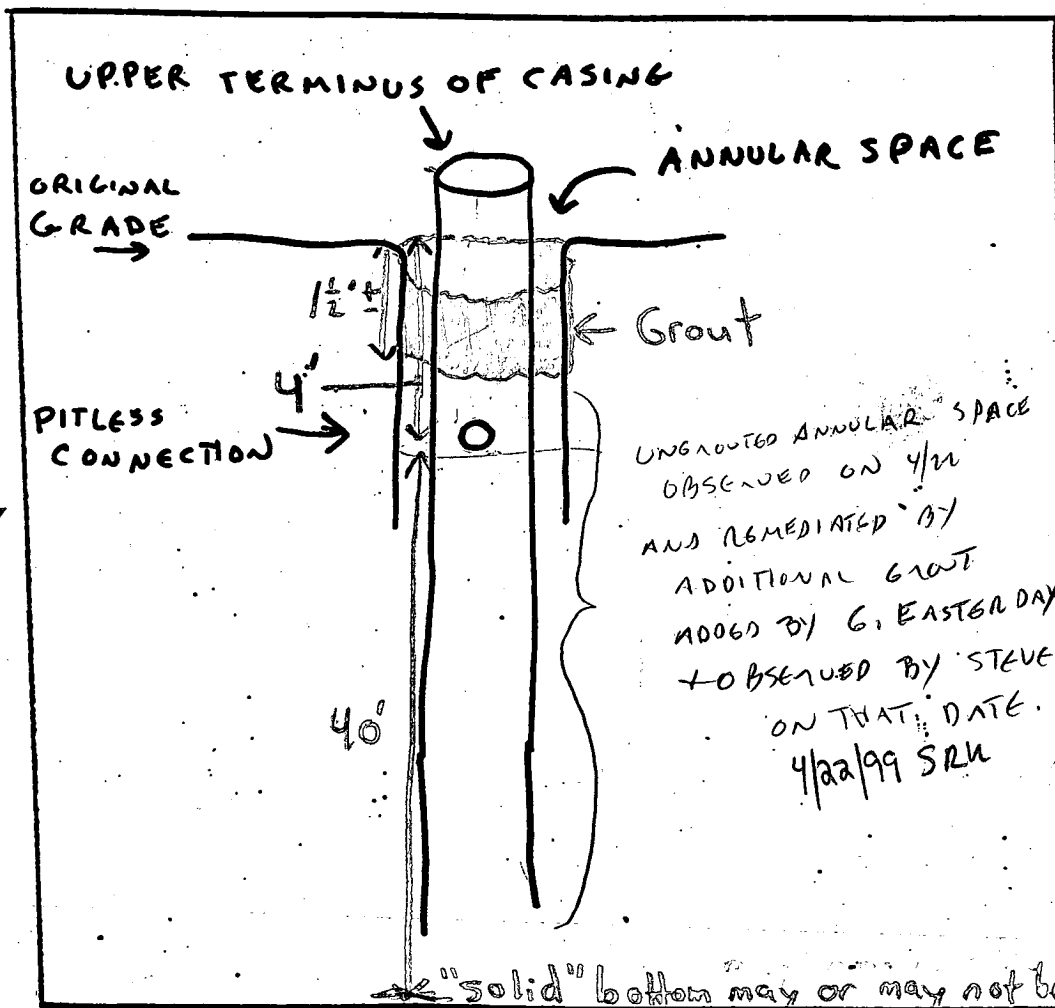 UPPER TERMINUS OF CASING
ANNULAR SPACE
ORIGINAL
GRADE
1 1/2' ±
Grout
4'
PITLESS
CONNECTION
UNGROUTED ANNULAR SPACE
OBSERVED ON 4/22
AND REMEDIATED BY
ADDITIONAL GROUT
ADDED BY G. EASTERDAY
+ OBSERVED BY STEVE
ON THAT DATE.
4/22/99 SRK
40'
"solid" bottom may or may not b